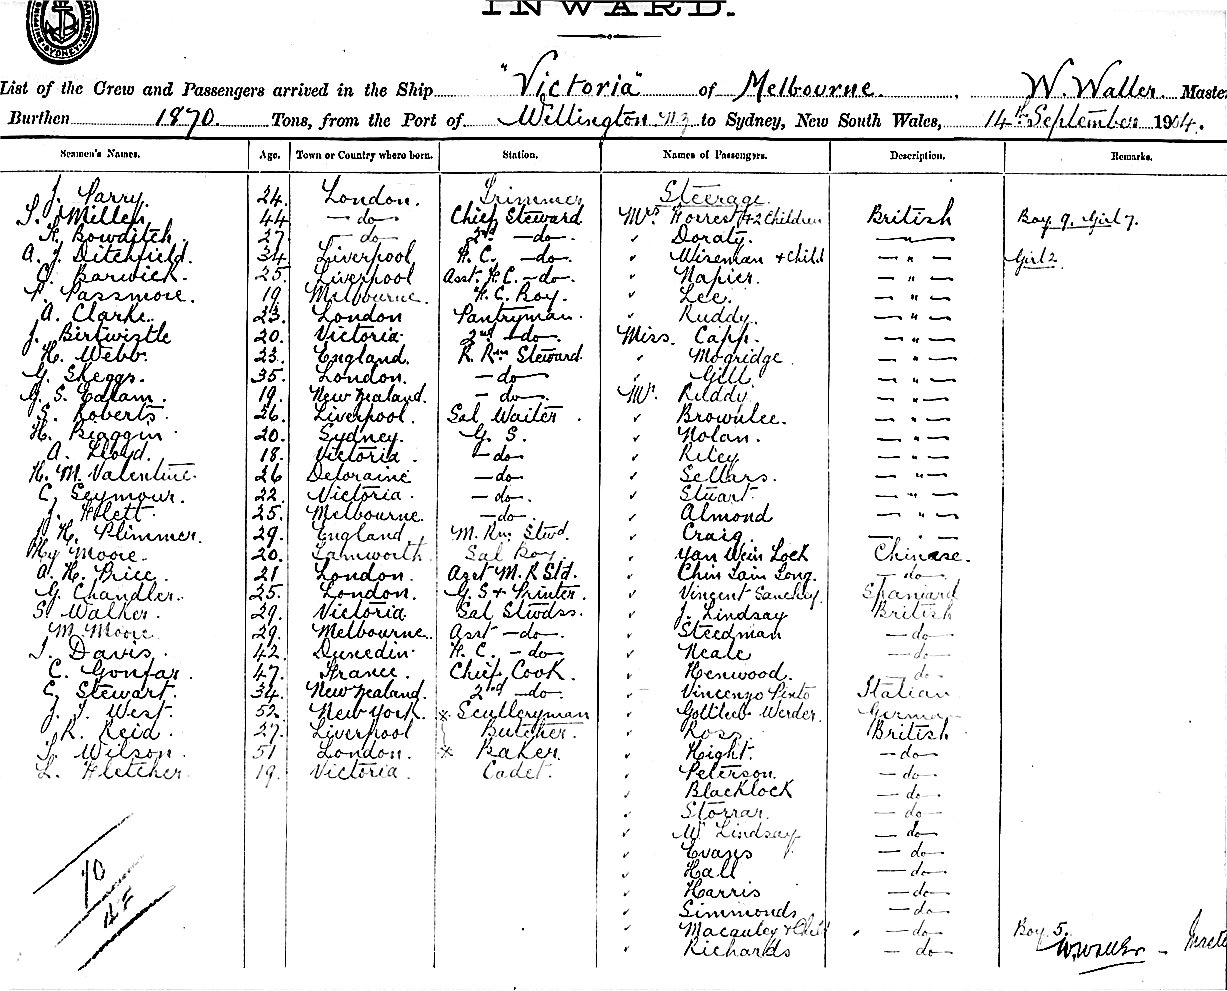 INWARD.
SYDNEY
List of the Crew and Passengers arrived in the Ship "Victoria" of Melbourne. W. Waller Master
Burthen 1870. Tons, from the Port of Wellington N.Z to Sydney, New South Wales, 14th September 1904.
Seamen's Names. Age. Town or Country where born. Station. Names of Passengers. Description. Remarks.
J. Parry. 24. London. Trimmer Steerage
Millen 44 — do — Chief Steward Mrs Forrest + 2 Children British Boy 9. Girl 7.
H. Bowditch 27 — do — 2nd — do — " Doraty. — " —
A. J. Ditchfield. 34 Liverpool F. C. — do — " Wiseman + Child — " — Girl 2
Barwick. 25. Liverpool Asst. F.C. — do — " Napier. — " —
Passmore. 19 Melbourne. F. C. Boy. " Lee. — " —
A. Clarke. 23. London Pantryman. " Ruddy. — " —
J. Birtwistle 20. Victoria 2nd — do — Miss. Capp. — " —
H. Webb. 23. England. R. Rm Steward. " Mogridge — " —
G. Skeggs. 35. London. — do — " Gill — " —
G. S. Edlam. 19. New Zealand. — do — Mr. Ruddy — " —
S. Roberts. 26. Liverpool. Sal Waiter " Brownlee. — " —
H. Biaggin 20. Sydney. G. S. " Nolan. — " —
A. Lloyd. 18. Victoria — do — " Riley — " —
H. M. Valentine. 26 Deloraine — do — " Sellars. — " —
C. Seymour. 22. Victoria. — do — " Stuart. — " —
J. Flett 25. Melbourne. — do — " Almond — " —
H. Plimmer. 29. England. M. Rm. Stwd. " Craig. — " —
Hy Moore. 20. Tamworth. Sal Boy. " Yan Wein Lock Chinese.
A. H. Price. 21 London. Asst M. R Std. " Chin Lain Long. — do —
G. Chandler. 25. London. G. S + Printer. " Vincent Sanchez. Spaniard
S. Walker. 29. Victoria Sal Stwdss. " J. Lindsay British
M. Moore 29. Melbourne. Asst — do — " Steedman — do —
J. Davis. 42. Dunedin. F. C. — do — " Neale — do —
C. Gonfar. 47. France. Chief Cook. " Henwood. — do —
C. Stewart. 34. New Zealand. 2nd — do — " Vincenzo Pinto Italian.
J. J. West. 52. New York. x Sculleryman " Gottlieb Werder. German
R. Reid 27. Liverpool Butcher. " Ross. British
Wilson. 51 London. x Baker. " Hight. — do —
L. Fletcher. 19. Victoria. Cadet. " Peterson. — do —
" Blacklock — do —
" Storrar. — do —
" W Lindsay — do —
" Evans — do —
" Hall — do —
" Harris — do —
" Simmonds — do —
" Macauley + Child — do — Boy 5.
" Richards — do — W. Waller — Maste
70